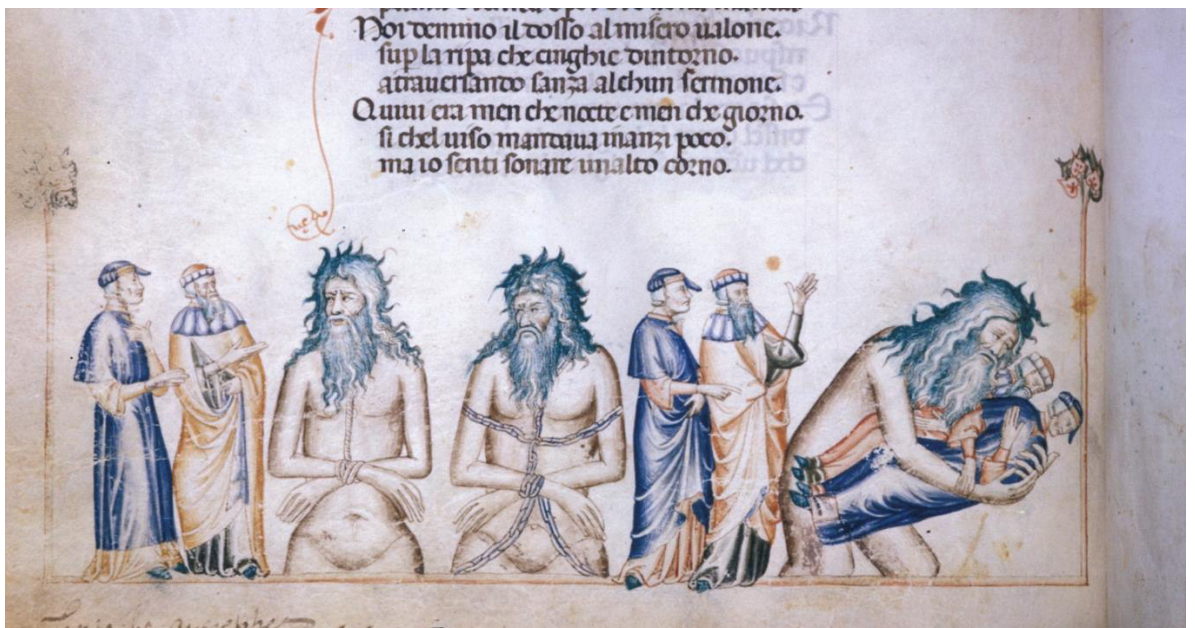 Noi demmo il dosso al misero ualone.
sup la ripa che cinghie dintorno.
attrauersando sanza alchun sermone.
Quiui era men che nocte e men che giorno.
si chel uiso mandaua inanzi poco.
ma io senti sonare un alto corno.